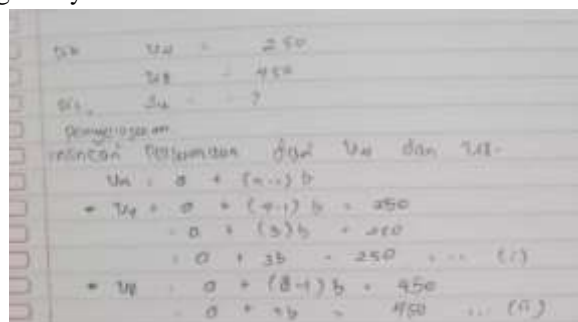 Dik U4 = 250
U8 = 450
Dit =
Penyelesaian
mencari Persamaan dari U4 dan U8.
Un = a + (n-1) b
• U4 = a + (4-1) b = 250
= a + (3) b = 250
= a + 3b = 250 .... (i)
• U8 = a + (8-1) b = 450
= a + 7b = 450 ... (ii)